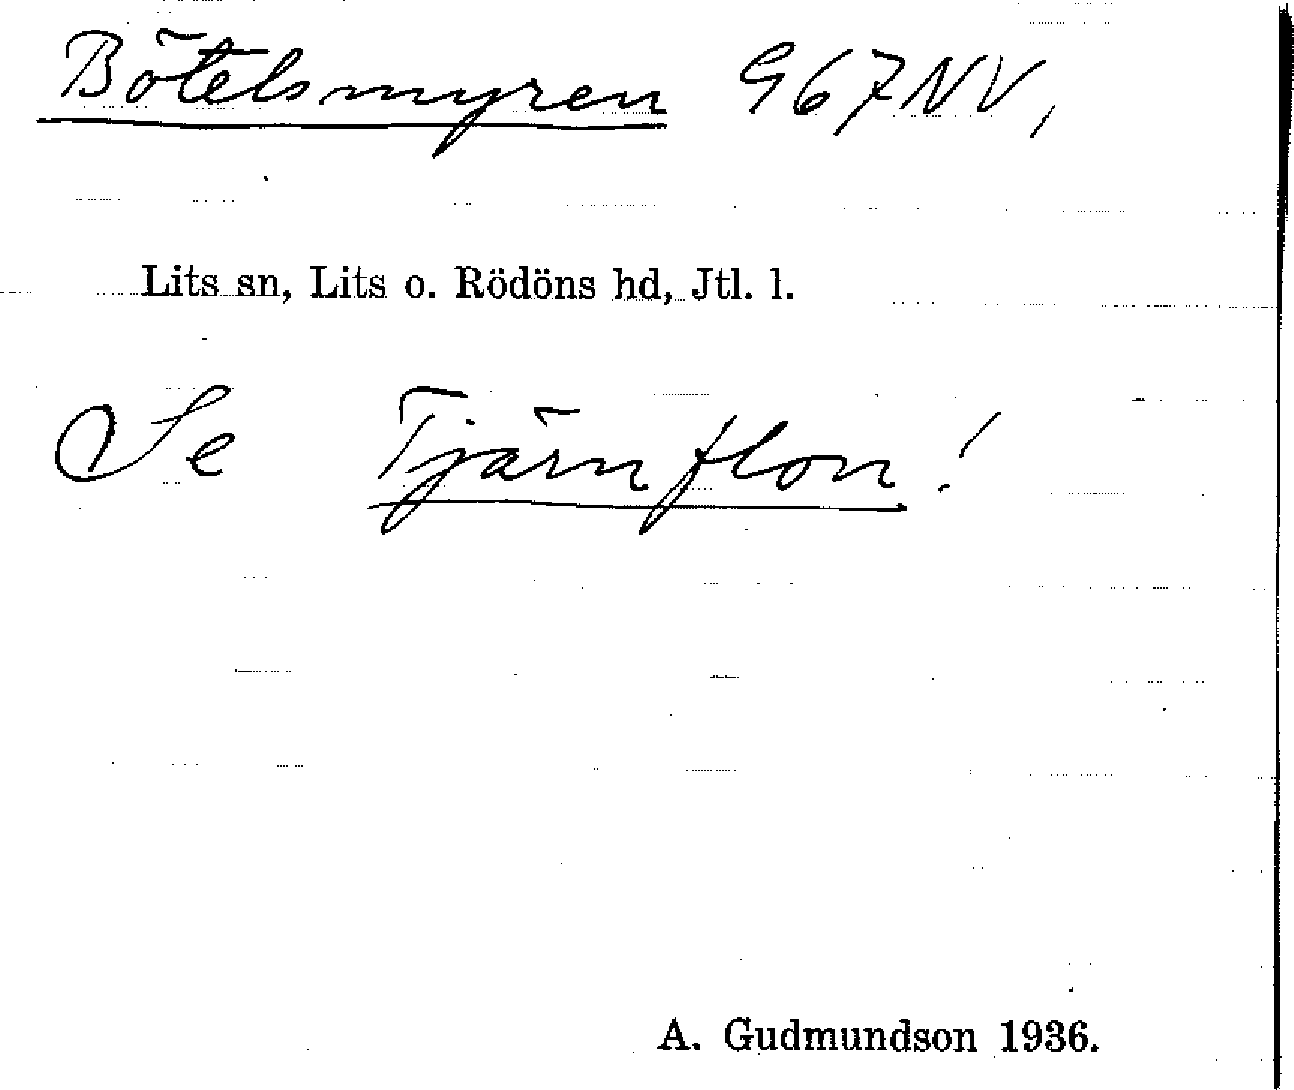 Bötelsmyren 967NV,
Lits sn, Lits o. Rödöns hd, Jtl. l.
Se Tjärnflon!
A. Gudmundson 1936.